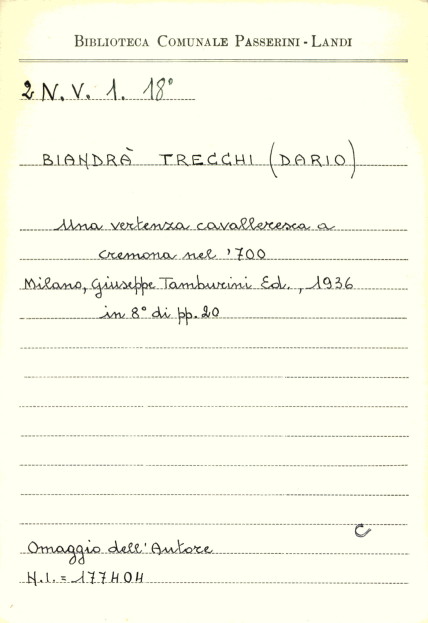 BIBLIOTECA COMUNALE PASSERINI - LANDI
2 N. V. 1. 18°
BIANDRÀ TRECCHI (DARIO)
Una vertenza cavalleresca a
cremona nel '700
Milano, Giuseppe Tamburini Ed., 1936
in 8° di pp. 20
C
Omaggio dell'Autore
N.I. = 177404